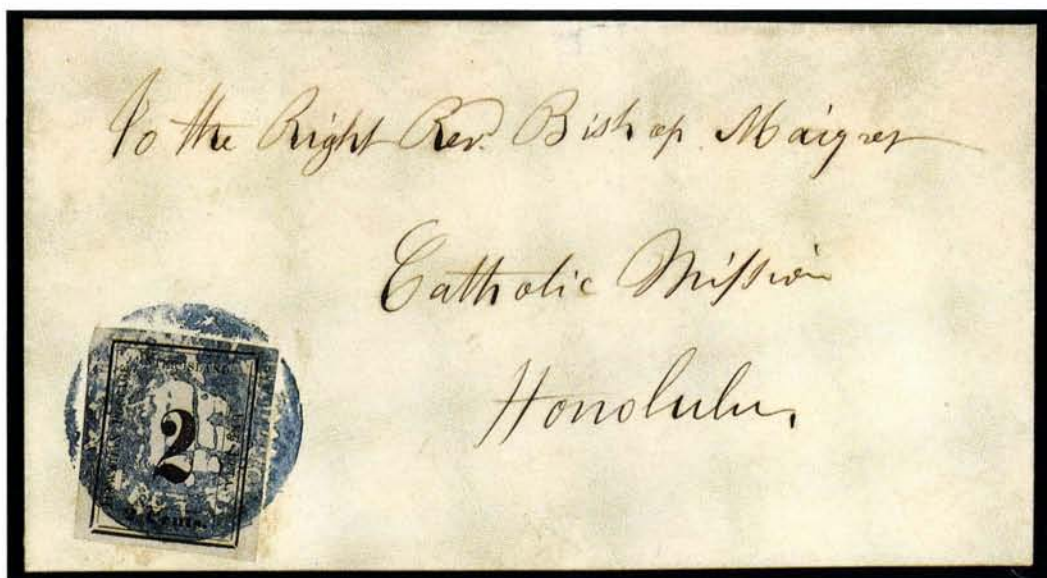 To the Right Rev. Bishop Maigret
Catholic Mission
Honolulu,
2
2 Cents.